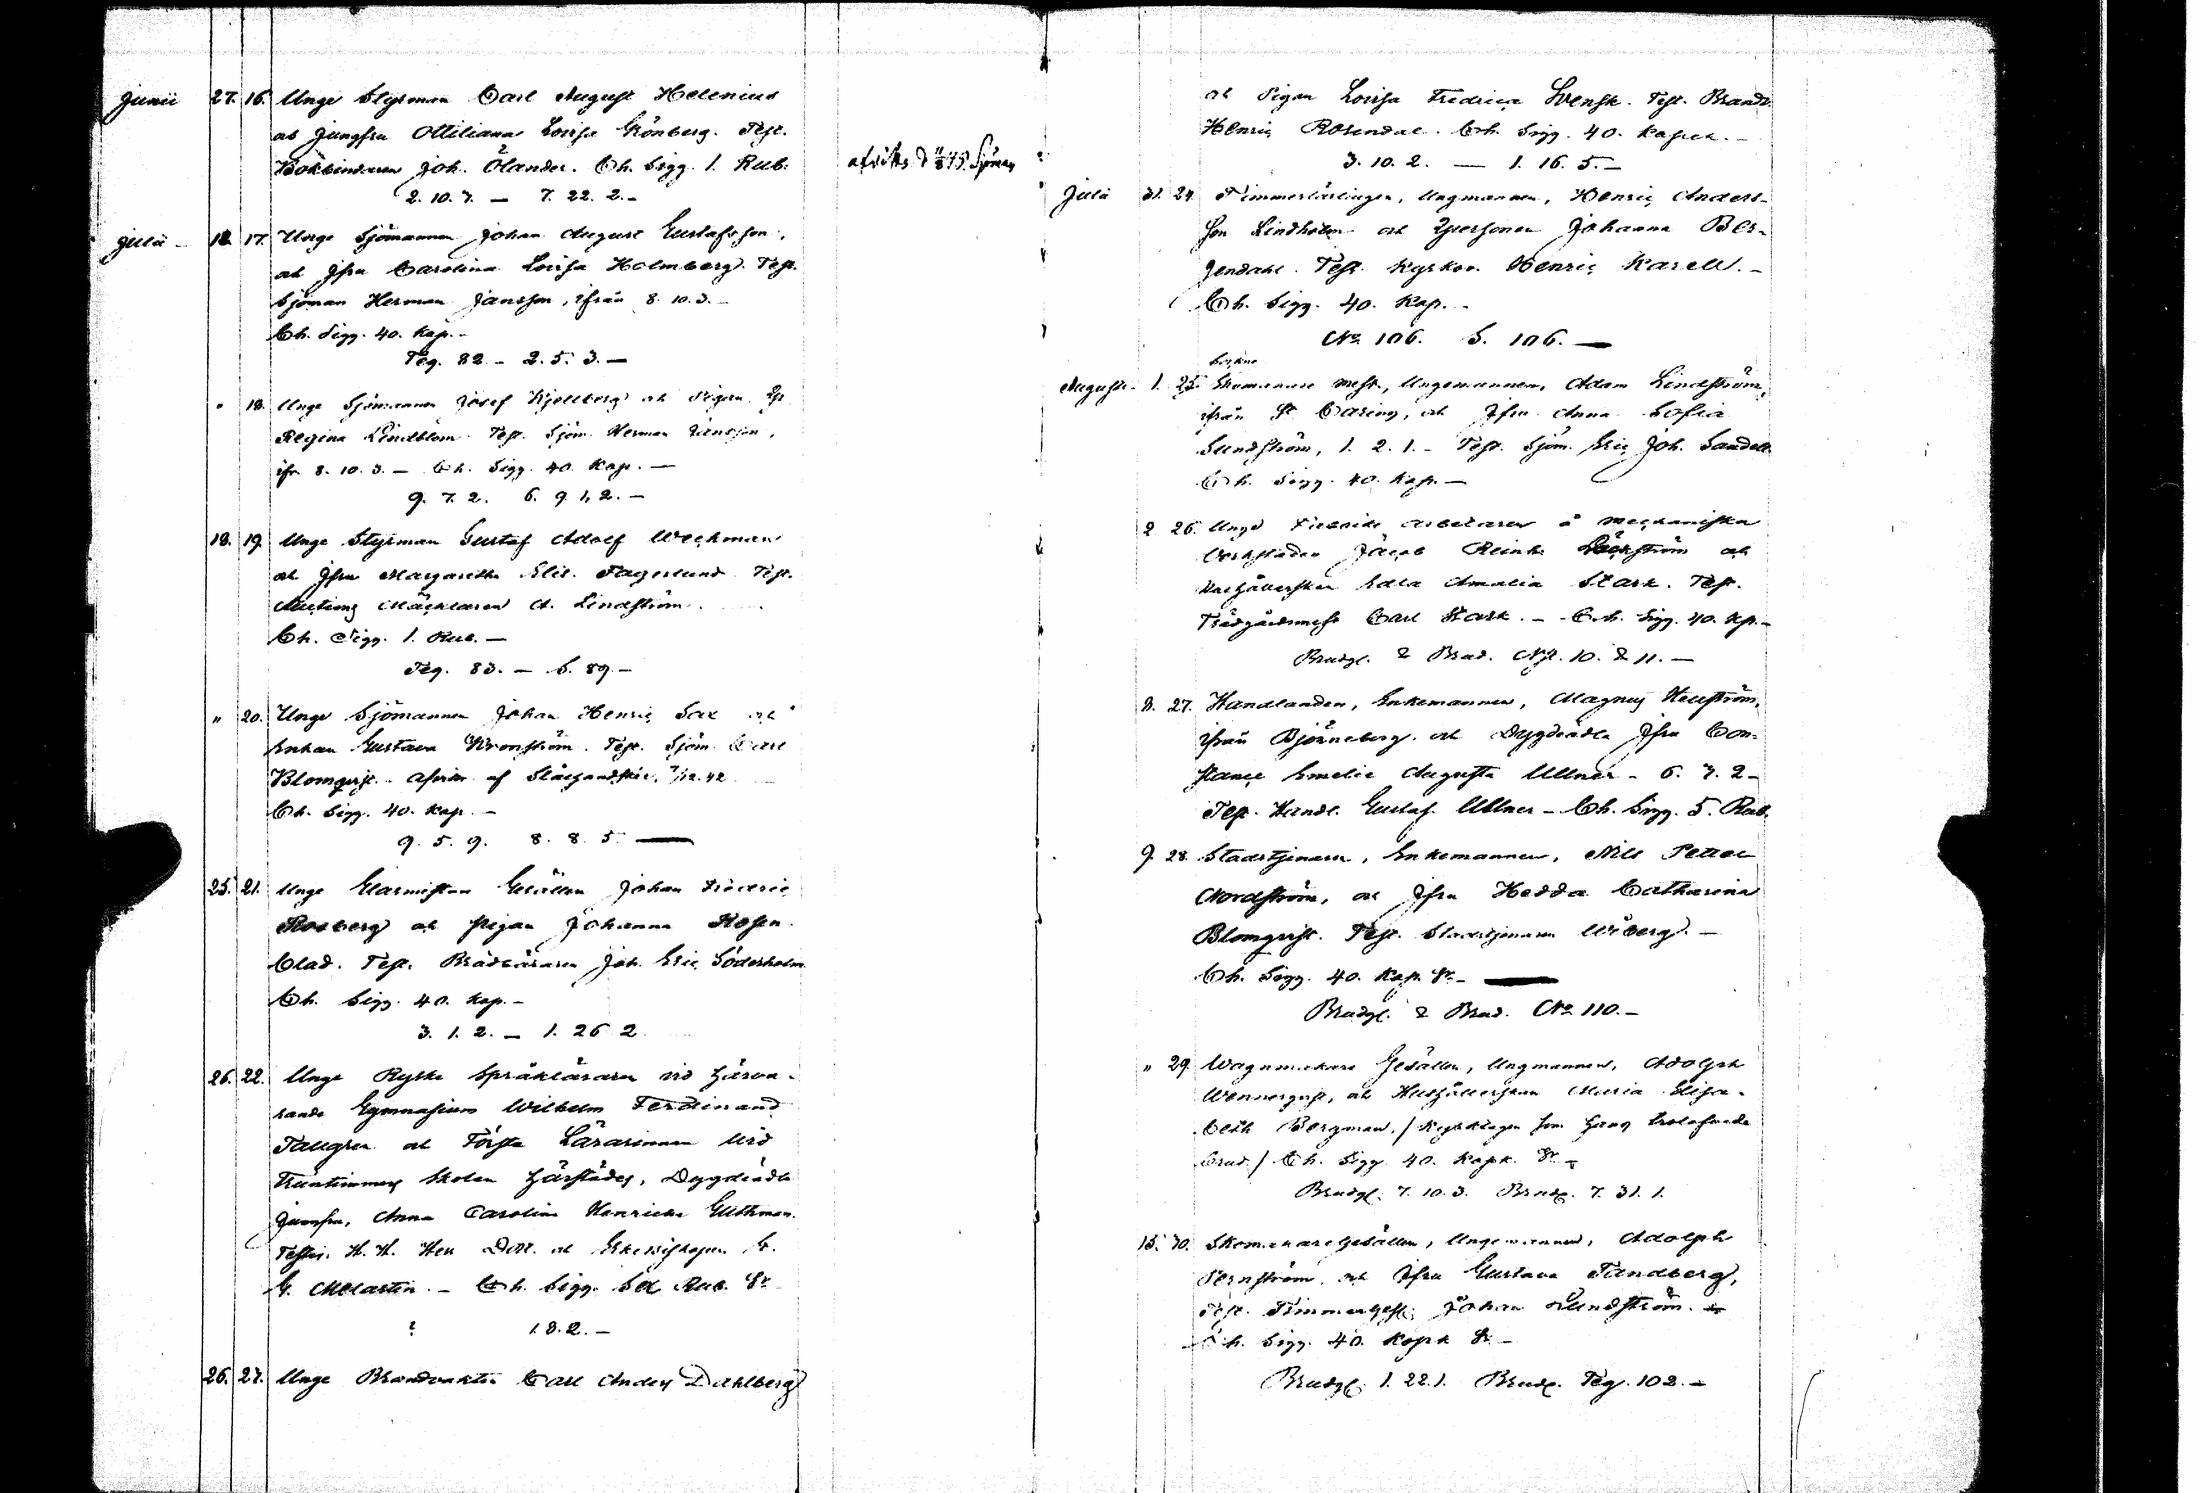 Junii 27. 16. Unge Styrman Carl August Helenius
och jungfru Ottiliana Lovisa Grönberg. Test.
Bokbindaren Joh. Ölander. Ch. Sigg. 1. Rub.
2. 10. 7. — 7. 22. 2. —
Julii — 12. 17. Unge Sjömannen Johan August Gustafsson,
och Jfru Carolina Lovisa Holmberg. Test.
Sjöman Herman Jansson, ifrån 8. 10. 3. —
Ch. Sigg. 40. Kop. —
Teg. 82 — 2. 5. 3. —
" 18. Unge Sjömannen Josef Kjellberg och Pigan
Regina Lindblom. Test. Sjöm. Herman Jansson,
ifr. 8. 10. 3. — Ch. Sigg. 40. Kop. —
9. 7. 2. 6. 9. 1, 2. —
18. 19. Unge Styrman Gustaf Adolf Weckman
och Jfru Margaretha Elis. Fagerlund. Test.
Auctions Mäcklaren A. Lindström.
Ch. Sigg. 1. Rub. —
Teg. 83. — S. 89. —
" 20. Unge Sjömannen Johan Henric Sax och
Enkan Gustava Kronström. Test. Sjöm. Carl
Blomqvist. af
Ch. Sigg. 40. Kop. —
9. 5. 9. 8. 8. 5. —
25. 21. Unge Garfvare Gesällen Johan Fredric
Rosberg och pigan Johanna Rosen-
blad. Test. Brädbäraren Joh. Eric Söderholm
Ch. Sigg. 40. Kop. —
3. 1. 2. — 1. 26 2
26. 22. Unge Ryske Språkläraren vid härva-
rande Gymnasium Wilhelm Ferdinand
Tallgren och Första Lärarinnan vid
Fruntimmers Skolan härstädes, Dygdeädla
Jumfru, Anna Carolina Henrica
Testis. H. H. Herr Doct. och Erkebiskopen
G. Melartin. — Ch. Sigg. Sex Rub. Sr
? 1. 8. 2. —
26. 23. Unge Brandvakten Carl Anders Dahlberg
och Pigan Lovisa Fredrica Svensk. Test. Brandv.
Henric Rosendal. Ch. Sigg. 40. Kopek. —
3. 10. 2. — 1. 16. 5. —
Julii 31. 24. Timmerlärlingen, Ungmannen, Henric Anders-
son Lindholm och Qpersonen Johanna Ber-
gendahl. Test. Kyrkov. Henric Karell. —
Ch. Sigg. 40. Kop. —
No 106. S. 106. —
Augusti — 1. 25. Skomakare mest., Ungemannen, Adam Lindström,
ifrån St Carins, och Jfru Anna Sofia
Sundström, 1. 2. 1. — Test. Sjöm. Eric Joh. Sandell
Ch. Sigg. 40. Kop. —
2 26. Unge arbetaren å mechaniska
Verkstaden Jacob Reinh. och
Hushållerskan Edla Amalia Stark. Test.
Trädgårdsmest. Carl Stark. — Ch. Sigg. 40. Kp. —
Brudg. & Brud. Nft. 10. & 11. —
8. 27. Handlanden, Enkemannen, Magnus Hellström,
ifrån Björneborg och Dygdeädla Jfru Con-
stance Emelie Augusta Ullner — 6. 7. 2 —
Test. Handl. Gustaf Ullner — Ch. Sigg. 5. Rub.
9. 28. Stadstjenaren, Enkemannen, Nils Petter
Nordström, och Jfru Hedda Catharina
Blomqvist. Test. Stadstjenaren Wiberg. —
Ch. Sigg. 40. Kop. Sr —
Brudg. & Brud. No 110. —
" 29. Wagnmakare Gesällen, Ungmannen, Adolph
Wennerqvist, och Hushållerskan Maria Elisa-
beth Bergman, / Kyrktagen som hans trolofvade
brud / Ch. Sigg. 40. Kopk. Sr —
Brudg. 7. 10. 3. Brud. 7. 31. 1.
15. 30. Skomakaregesällen, Ungemannen, Adolph
Fernström, och Jfru Gustava Tandberg,
Test. Timmergesl. Johan Lundström.
Ch. Sigg. 40. Kopk Sr —
Brudg. 1. 22. 1. Brud. Teg. 102. —